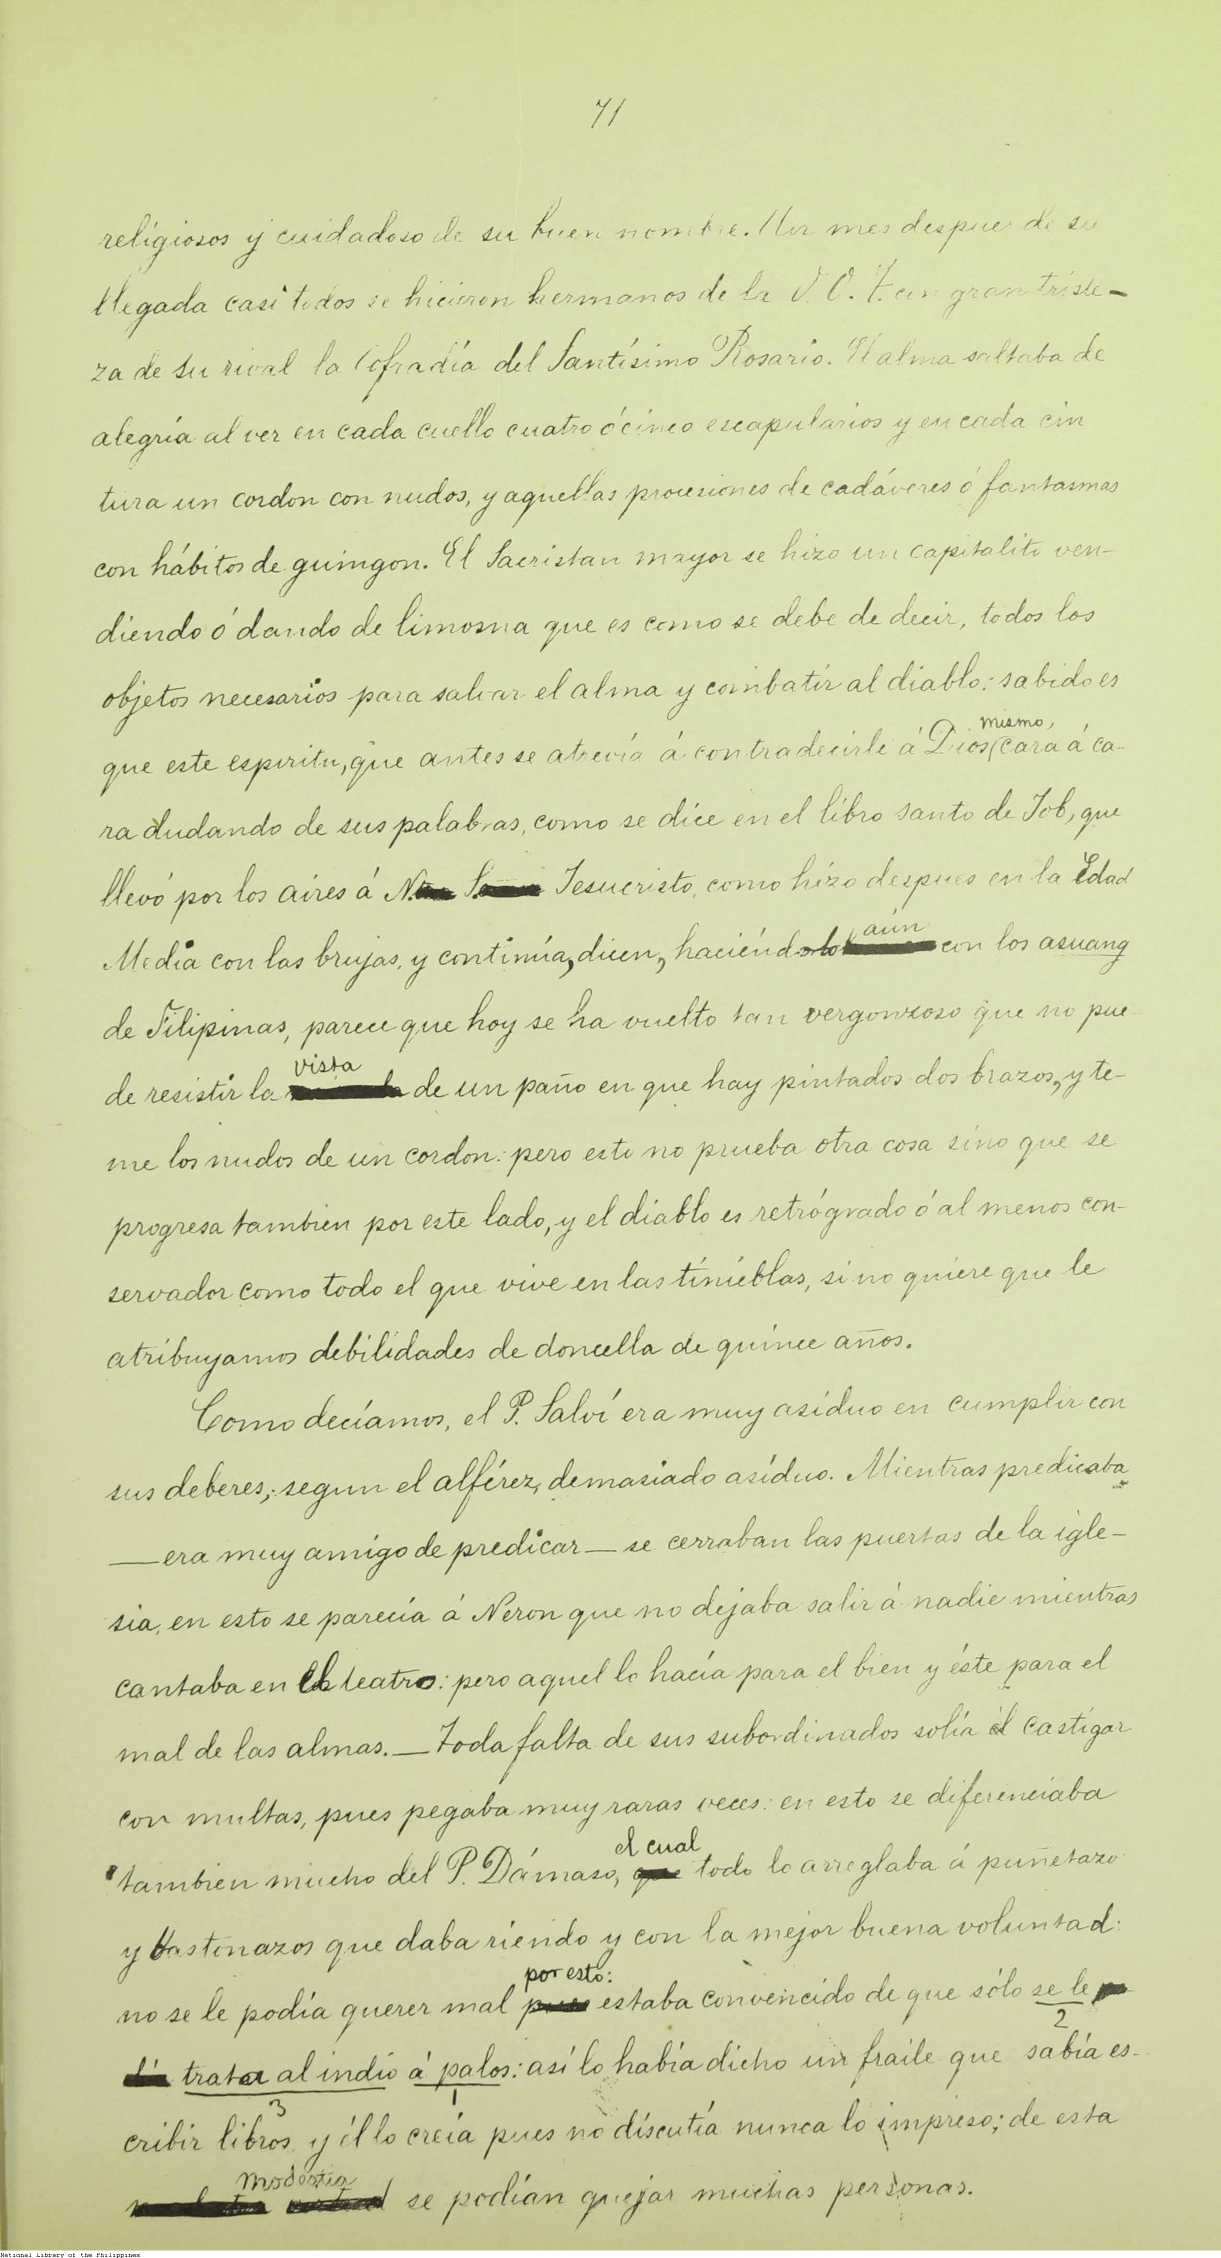 71
religiosos y cuidadoso de su buen nombre. Un mes despues de su
llegada casi todos se hicieron hermanos de la V. O. T. con gran triste-
za de su rival la Cofradía del Santísimo Rosario. El alma saltaba de
alegria al ver en cada cuello cuatro ó cinco escapularios y en cada cin
tura un cordon con nudos, y aquellas procesiones de cadáveres ó fantasmas
con hábitos de guingon. El Sacristan mayor se hizo un capitalito ven-
diendo ó dando de limosna que es como se debe de decir, todos los
objetos necesarios para salvar el alma y combatir al diablo: sabido es
mismo,
que este espiritu, que antes se atrevía á contradecirle á Dios cara á ca-
ra dudando de sus palabras, como se dice en el libro santo de Job, que
llevó por los aires á N. S. Jesucristo, como hizo despues en la Edad
aún
Media con las brujas, y continúa, dicen, haciéndolo con los asuang
de Filipinas, parece que hoy se ha vuelto tan vergonzoso que no pue-
vista
de resistir la de un paño en que hay pintados dos brazos, y te-
me los nudos de un cordon: pero esto no prueba otra cosa sino que se
progresa tambien por este lado, y el diablo es retrógrado ó al menos con-
servador como todo el que vive en las tinieblas, si no quiere que le
atribuyamos debilidades de doncella de quince años.
Como decíamos, el P. Salví era muy asíduo en cumplir con
sus deberes; segun el alférez, demasiado asíduo. Mientras predicaba
— era muy amigo de predicar — se cerraban las puertas de la igle-
sia, en esto se parecía á Neron que no dejaba salir á nadie mientras
cantaba en el teatro: pero aquel lo hacía para el bien y éste para el
mal de las almas. — Toda falta de sus subordinados solía él castigar
con multas, pues pegaba muy raras veces: en esto se diferenciaba
el cual
tambien mucho del P. Dámaso, que todo lo arreglaba á puñetazo
y bastonazos que daba riendo y con la mejor buena voluntad:
por esto:
no se le podía querer mal pues estaba convencido de que sólo se le
2
trata al indio á palos: así lo había dicho un fraile que sabía es-
3 1
cribir libros y él lo creía pues no discutía nunca lo impreso; de esta
modestia
se podían quejar muchas personas.
National Library of the Philippines